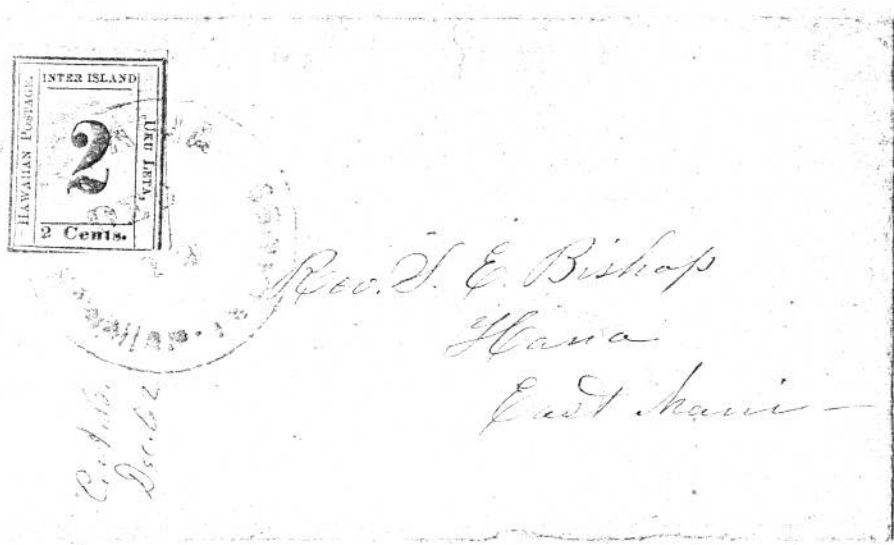 INTER ISLAND
HAWAIIAN POSTAGE.
UKU LETA,
2
2 Cents.
Rev. S. E. Bishop
Hana
East Maui
Dec. 62